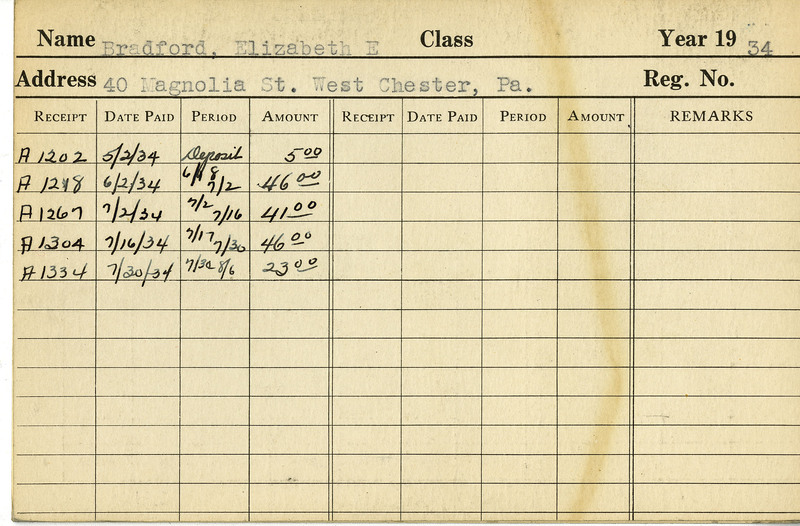 Name Bradford, Elizabeth E Class Year 19 34
Address 40 Magnolia St. West Chester, Pa. Reg. No.
RECEIPT DATE PAID PERIOD AMOUNT RECEIPT DATE PAID PERIOD AMOUNT REMARKS
A 1202 5/2/34 Deposit 5 00
A 1218 6/2/34 6/18 7/2 46 00
A 1267 7/2/34 7/2 7/16 41 00
A 1304 7/16/34 7/17 7/30 46 00
A 1334 7/30/34 7/30 8/6 23 00